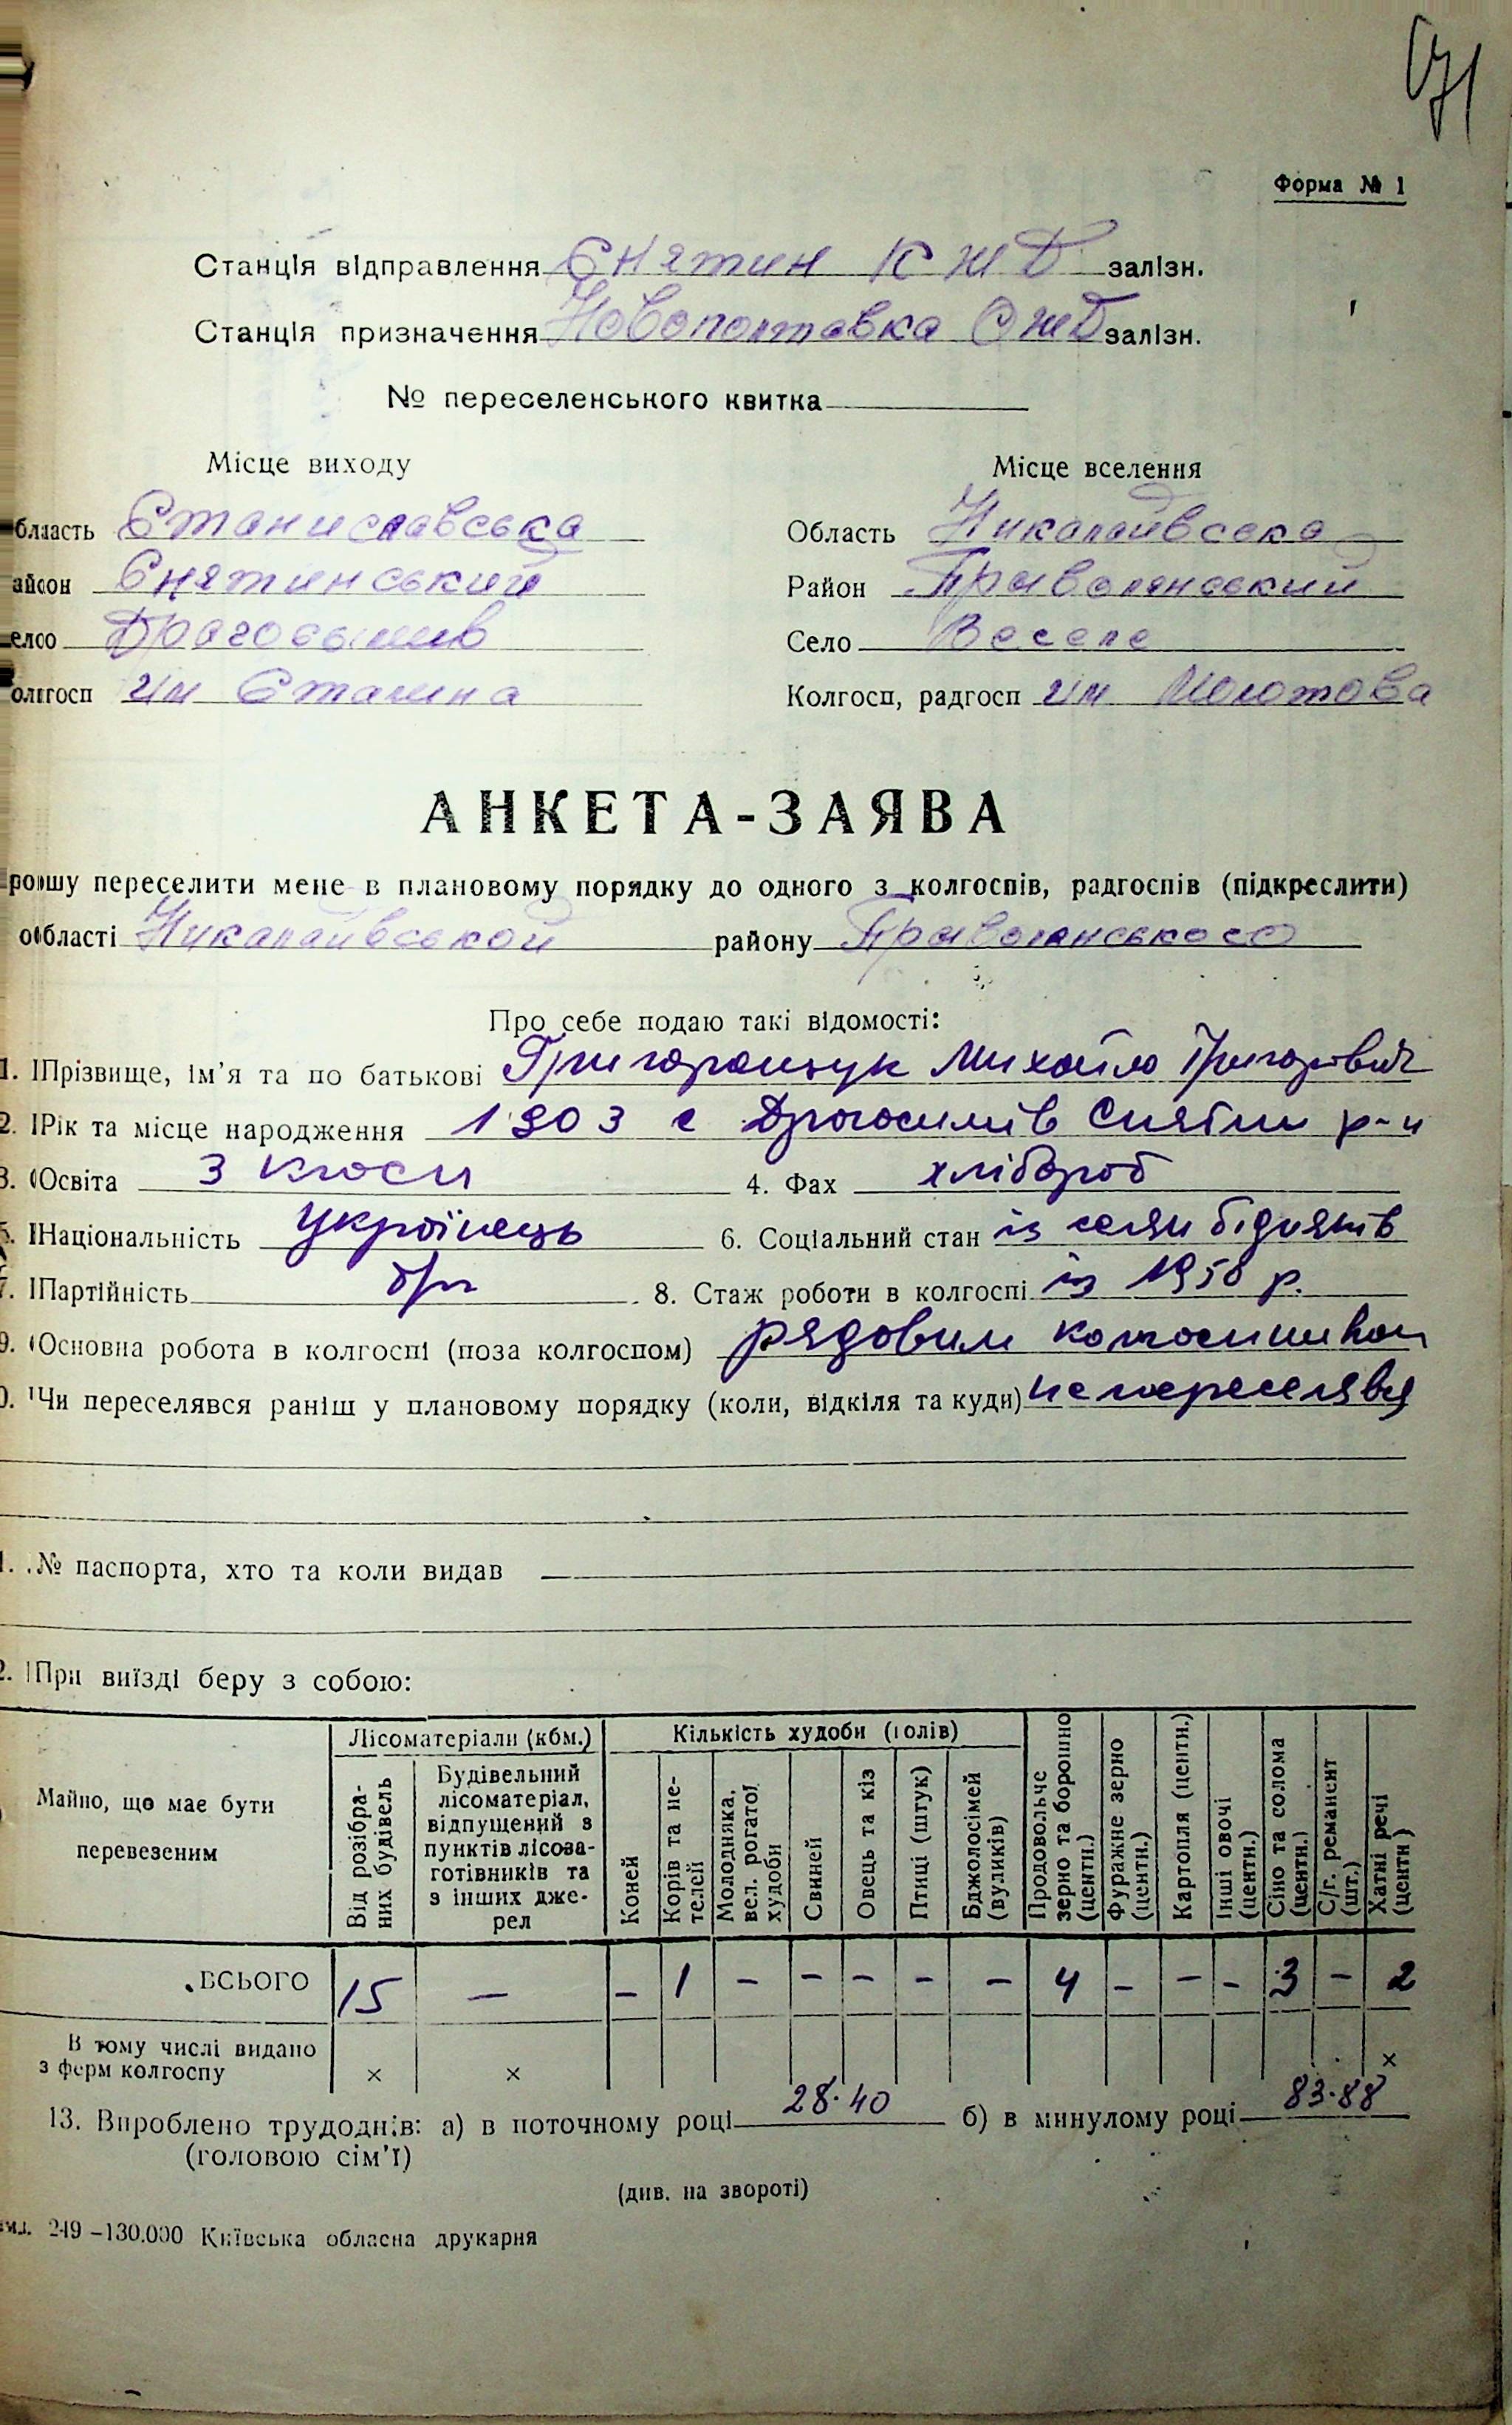 71
Форма № 1
Станція відправлення Снятин К Ж Д залізн.
Станція призначення Новополтавка О Ж Д залізн.
№ переселенського квитка
Місце виходу Місце вселення
бласть Станиславська Область Никалаївська
айон Снятинський Район Привольнянський
ело Драгосымів Село Веселе
олгосп Им Сталина Колгосп, радгосп Им Молотова
АНКЕТА-ЗАЯВА
рошу переселити мене в плановому порядку до одного з колгоспів, радгоспів (підкреслити)
області Никалаївськой району
Про себе подаю такі відомості:
1. Прізвище, ім'я та по батькові Григоращук Михайло Григорович
2. Рік та місце народження 1903 с Драгосимів Снятин р-н
3. Освіта 3 класи 4. Фах хлібороб
5. Національність Українець 6. Соціальний стан із селян бідняків
7. Партійність б/п 8. Стаж роботи в колгоспі із 1950 р.
9. Основна робота в колгоспі (поза колгоспом) рядовим колгоспником
0. Чи переселявся раніш у плановому порядку (коли, відкіля та куди) не переселявся
1. № паспорта, хто та коли видав
2. При виїзді беру з собою:
Майно, що має бути перевезеним
Лісоматеріали (кбм.)
Кількість худоби (голів)
Від розібра-
них будівель
Будівельний
лісоматеріал,
відпущений з
пунктів лісоза-
готівників та
з інших дже-
рел
Коней
Корів та не-
телей
Молодняка,
вел. рогатої
худоби
Свиней
Овець та кіз
Птиці (штук)
Бджолосімей
(вуликів)
Продовольче
зерно та борошно
(центн.)
Фуражне зерно
(центн.)
Картопля (центн.)
Інші овочі
(центн.)
Сіно та солома
(центн.)
С/г. реманент
(шт.)
Хатні речі
(центн)
ВСЬОГО 15 — – 1 – – – – – 4 – – – 3 – 2
В тому числі видано
з ферм колгоспу × × ×
13. Вироблено трудоднів: а) в поточному році 28·40 б) в минулому році 83·88
(головою сім'ї)
(див. на звороті)
м. 249–130.000 Київська обласна друкарня